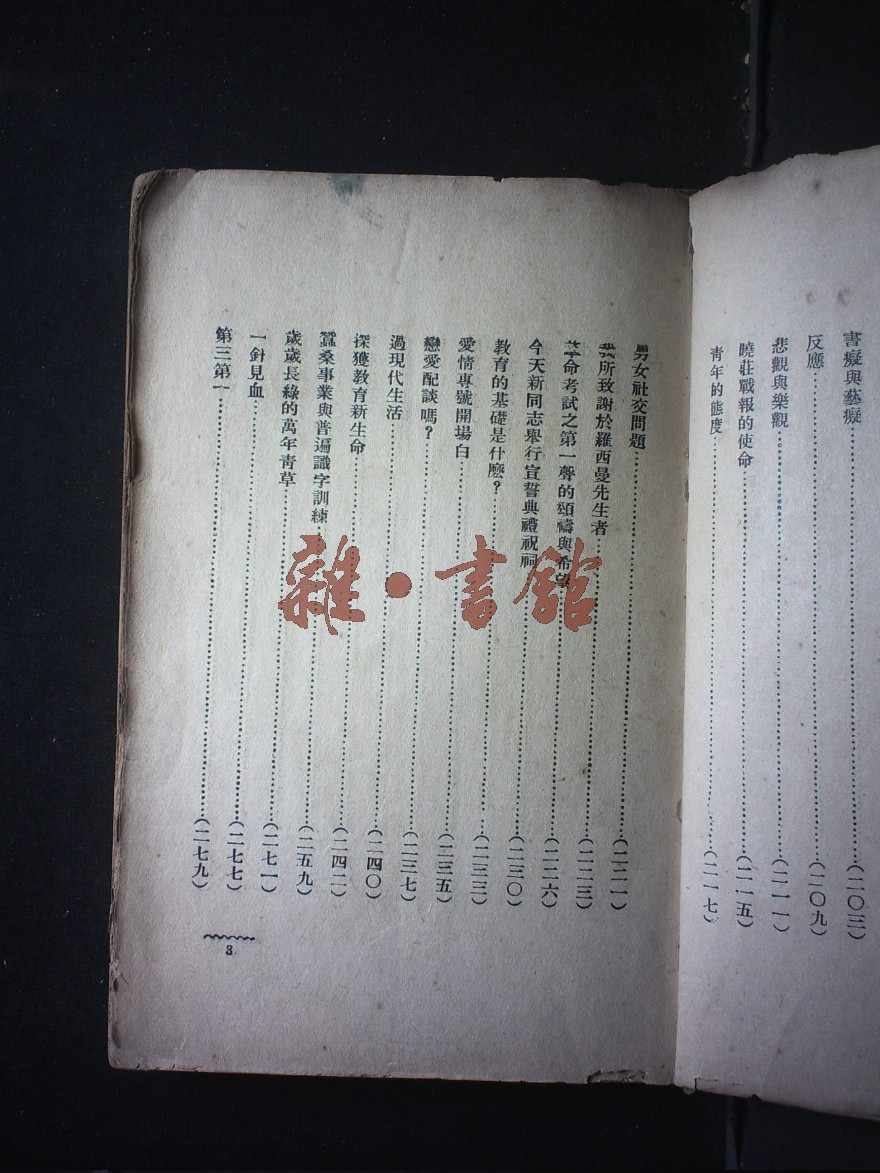 書癡與藝癡……(二〇三)
反應……(二〇九)
悲觀與樂觀……(二一一)
曉莊戰報的使命……(二一五)
青年的態度……(二一七)
男女社交問題……(二二一)
我所致謝於羅西曼先生者……(二二三)
革命考試之第一聲的頌禱與希望……(二二六)
今天新同志舉行宣誓典禮祝祠……(二三〇)
教育的基礎是什麽?……(二三三)
愛情專號開場白……(二三五)
戀愛配談嗎?……(二三七)
過現代生活……(二四〇)
深獲教育新生命……(二四二)
蠶桑事業與普遍識字訓練……(二五九)
歲歲長綠的萬年青草……(二七一)
一針見血……(二七七)
第三第一……(二七九)
3
雜·書館